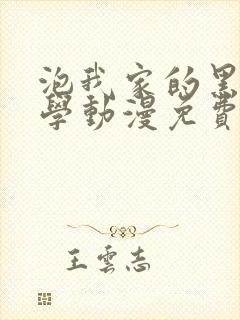 泡我家的黑
學動漫免費
王雲志